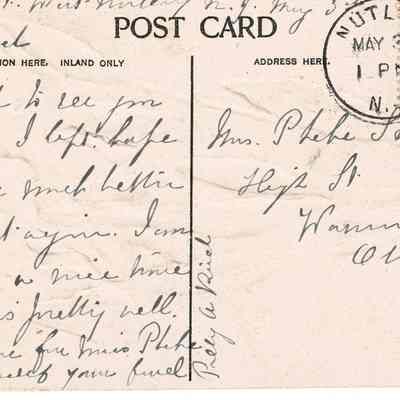 N.J. May 3
POST CARD
ION HERE, INLAND ONLY
ADDRESS HERE.
NUTL
MAY 3
1 PM
N.
to see you
I left. hope
much better
again. I am
a nice time
is pretty well.
for Miss Phebe
your friend
Mrs. Phebe
High St.
Warn